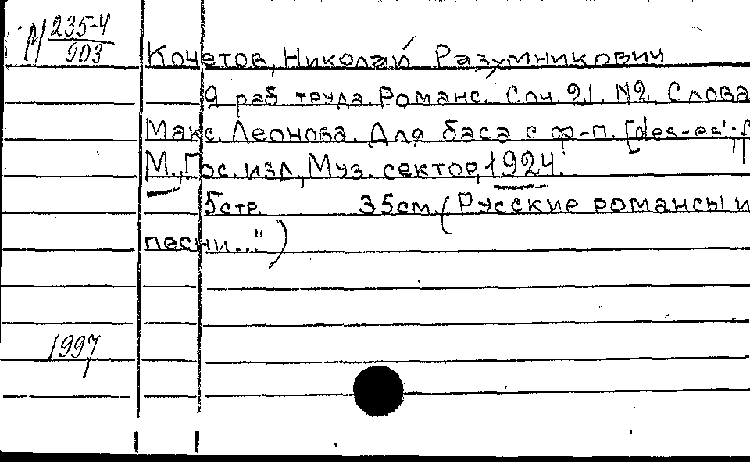 М 235-4
903
Кочетов, Николай Разумникович
О раб труда. Романс. Соч 21. №2. Слова
Макс. Леонова. Для баса с ф-п. [des-es';f
М., Гос. изд, Муз. сектор, 1924.
5стр. 35см. (Русские романсы и
песни..")
1997